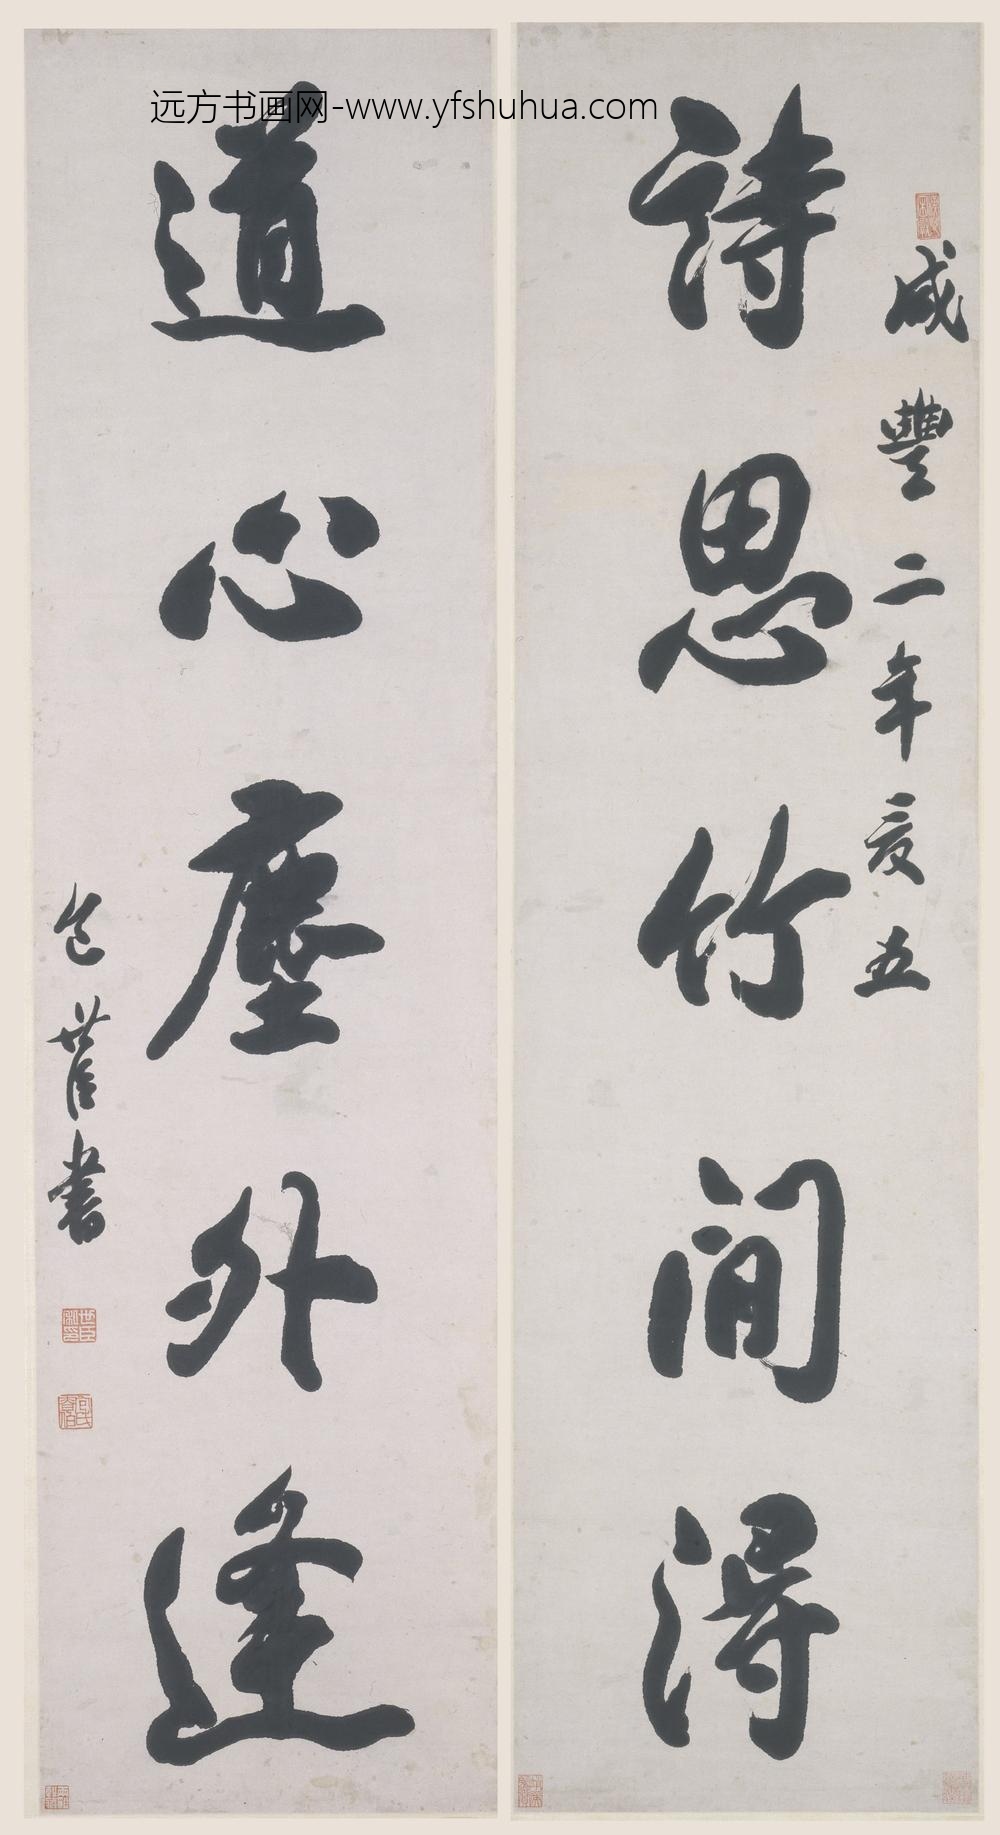 远方书画网-www.yfshuhua.com
咸豐二年夏五
詩思竹間得
道心塵外逢
包世臣書
世臣